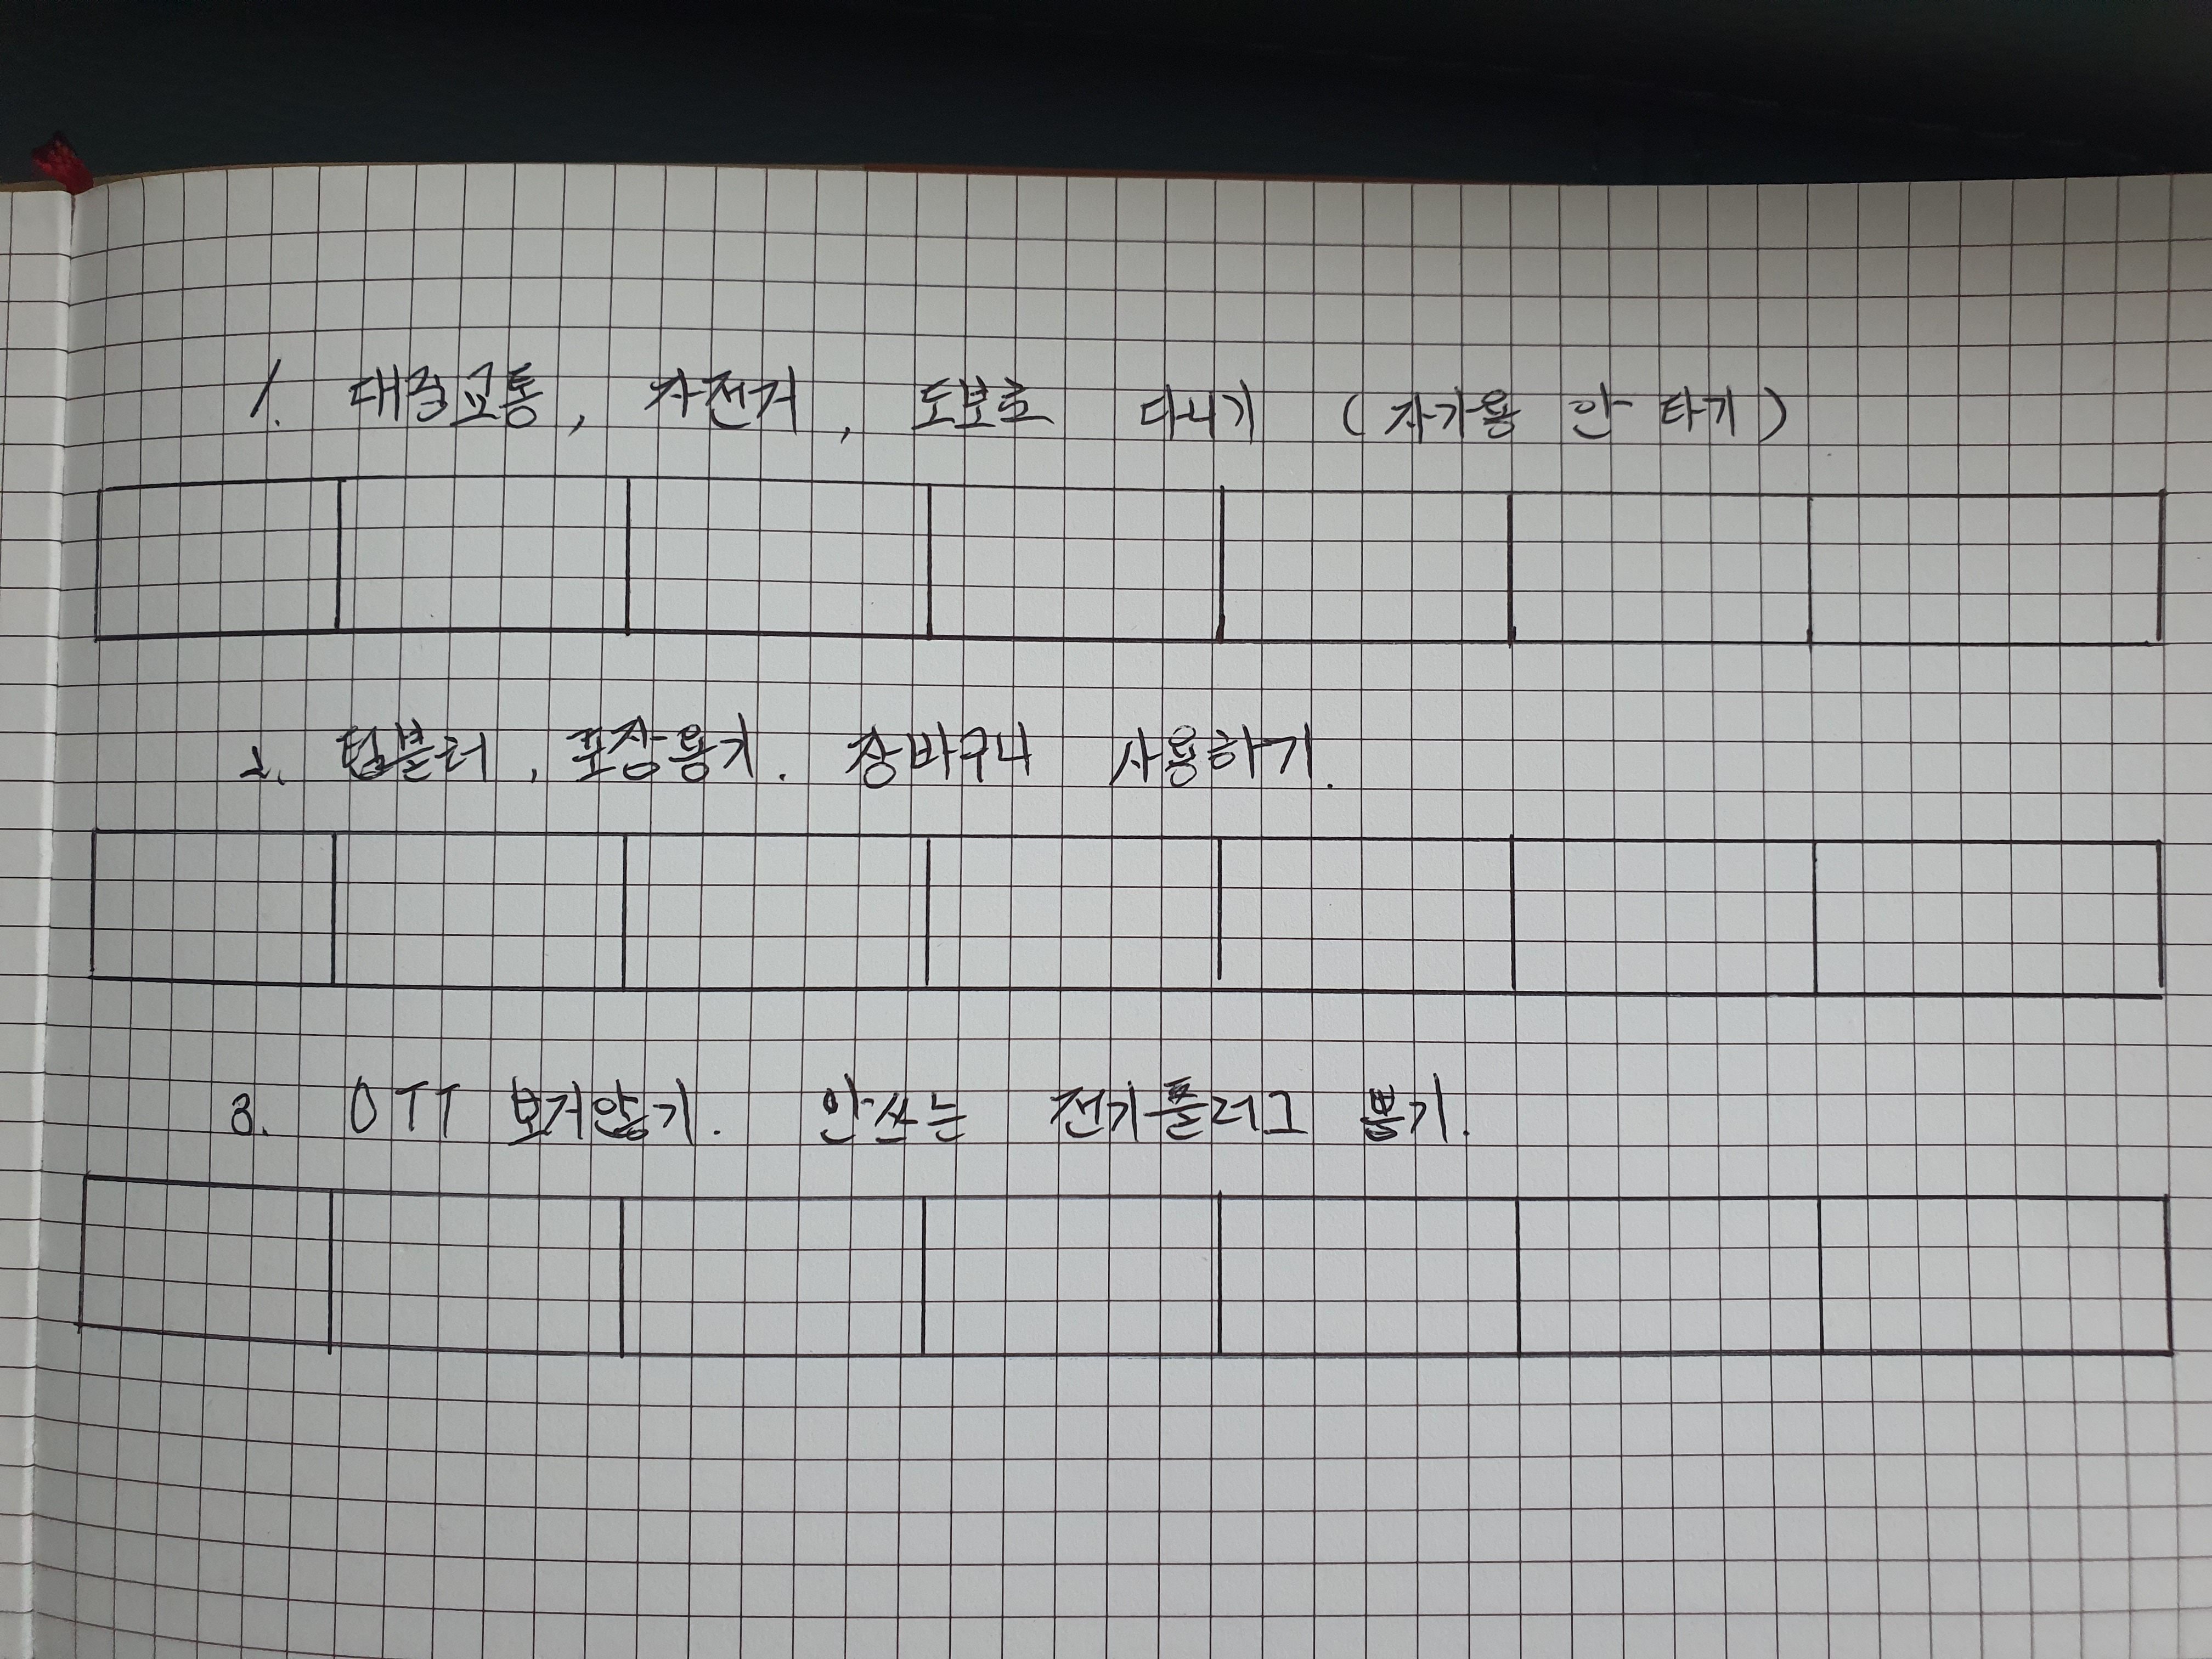 1. 대중교통, 자전거, 도보로 다니기 (자가용 안 타기)
2. 텀블러, 포장용기. 장바구니 사용하기.
3. OTT 보지않기. 안쓰는 전기플러그 뽑기.